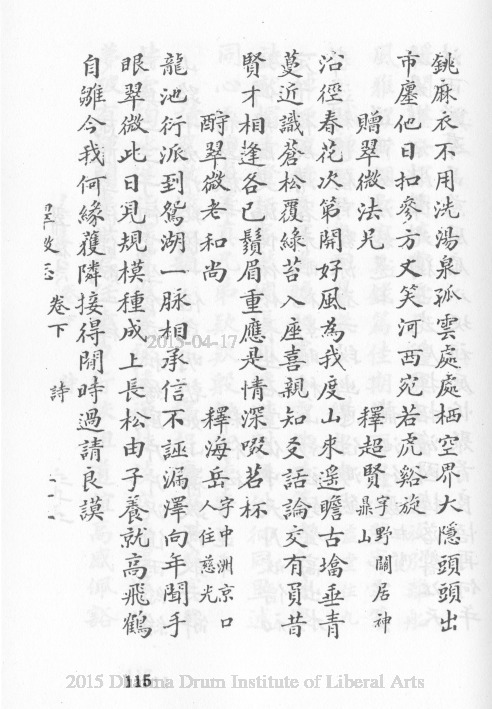 銚麻衣不用洗湯泉孤雲處處栖空界大隱頭頭出
市廛他日扣參方丈笑河西宛若虎谿旋
贈翠微法兄 釋超賢字野關居神鼎山
沿徑春花次第開好風為我度山來遥瞻古墖垂青
蔓近識蒼松覆綠苔入座喜親知爻話論交有負昔
賢才相逢各已鬚眉重應是情深啜茗杯
酧翠微老和尚 釋海岳字中洲京口人住慈光
龍池衍派到鴛湖一脉相承信不誣漏澤向年聞手
眼翠微此日見規模種成上長松由子養就高飛鶴
自雛今我何緣獲隣接得閒時過請良謨
卷下 詩
115
2015-04-17
2015 Dharma Drum Institute of Liberal Arts